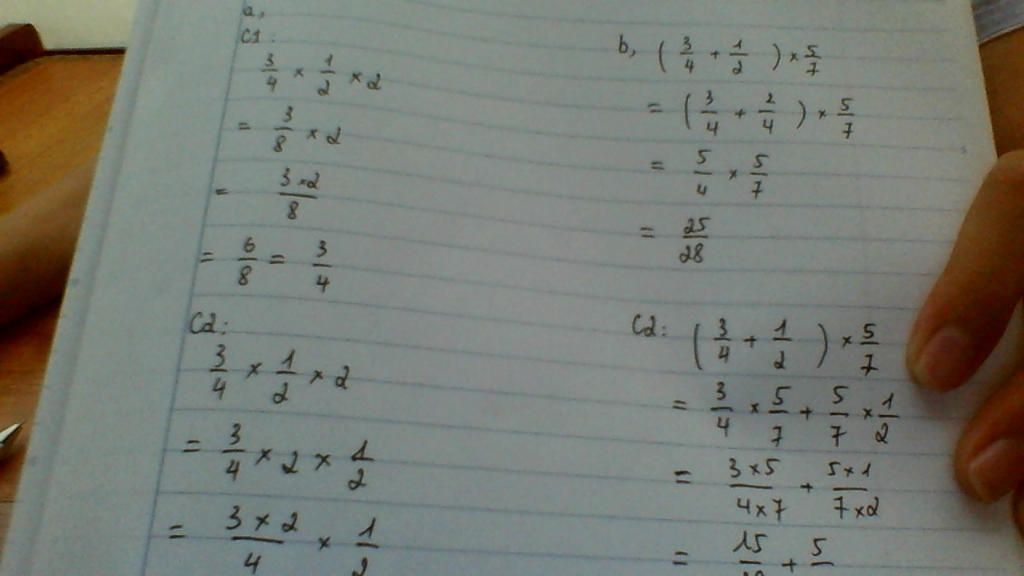 a,
C1:
3/4 × 1/2 × 2
= 3/8 × 2
= 3×2/8
= 6/8 = 3/4
C2:
3/4 × 1/2 × 2
= 3/4 × 2 × 1/2
= 3 × 2/4 × 1/2
b, (3/4 + 1/2) × 5/7
= (3/4 + 2/4) × 5/7
= 5/4 × 5/7
= 25/28
C2: (3/4 + 1/2) × 5/7
= 3/4 × 5/7 + 5/7 × 1/2
= 3×5/4×7 + 5×1/7×2
= 15 + 5